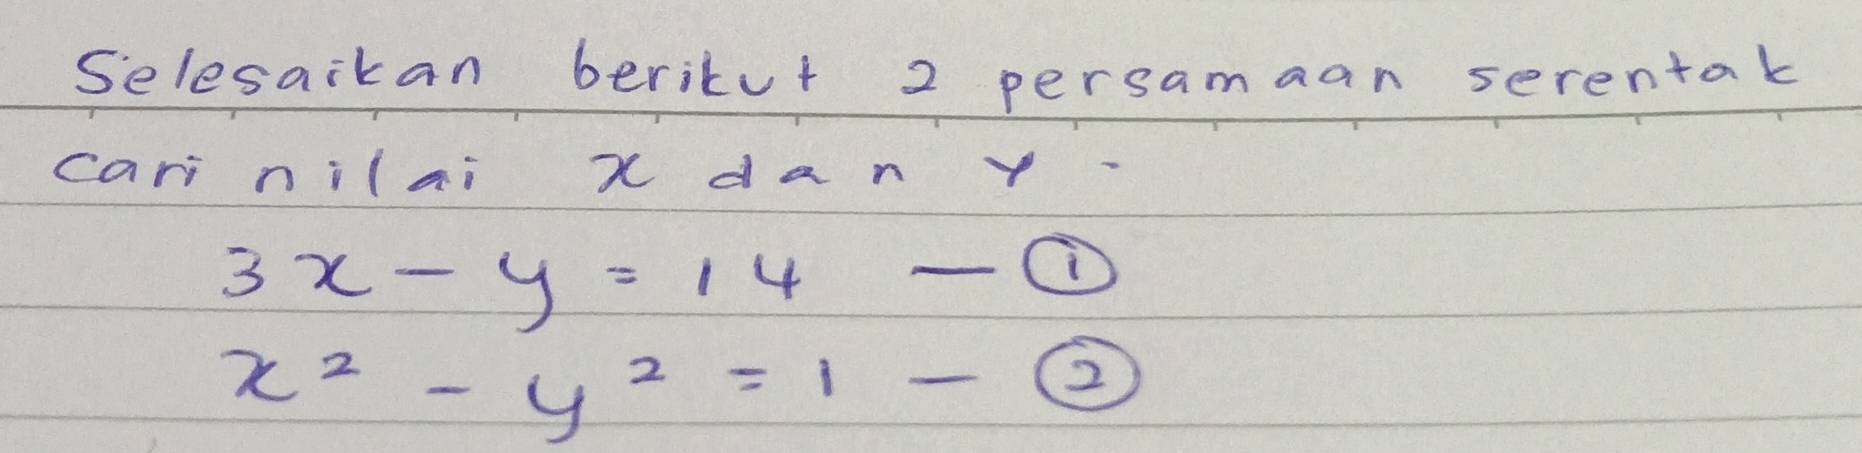 Selesaikan berikut 2 persamaan serentak
cari nilai x dan y.
3x - y = 14 — ①
x² - y² = 1 — ②